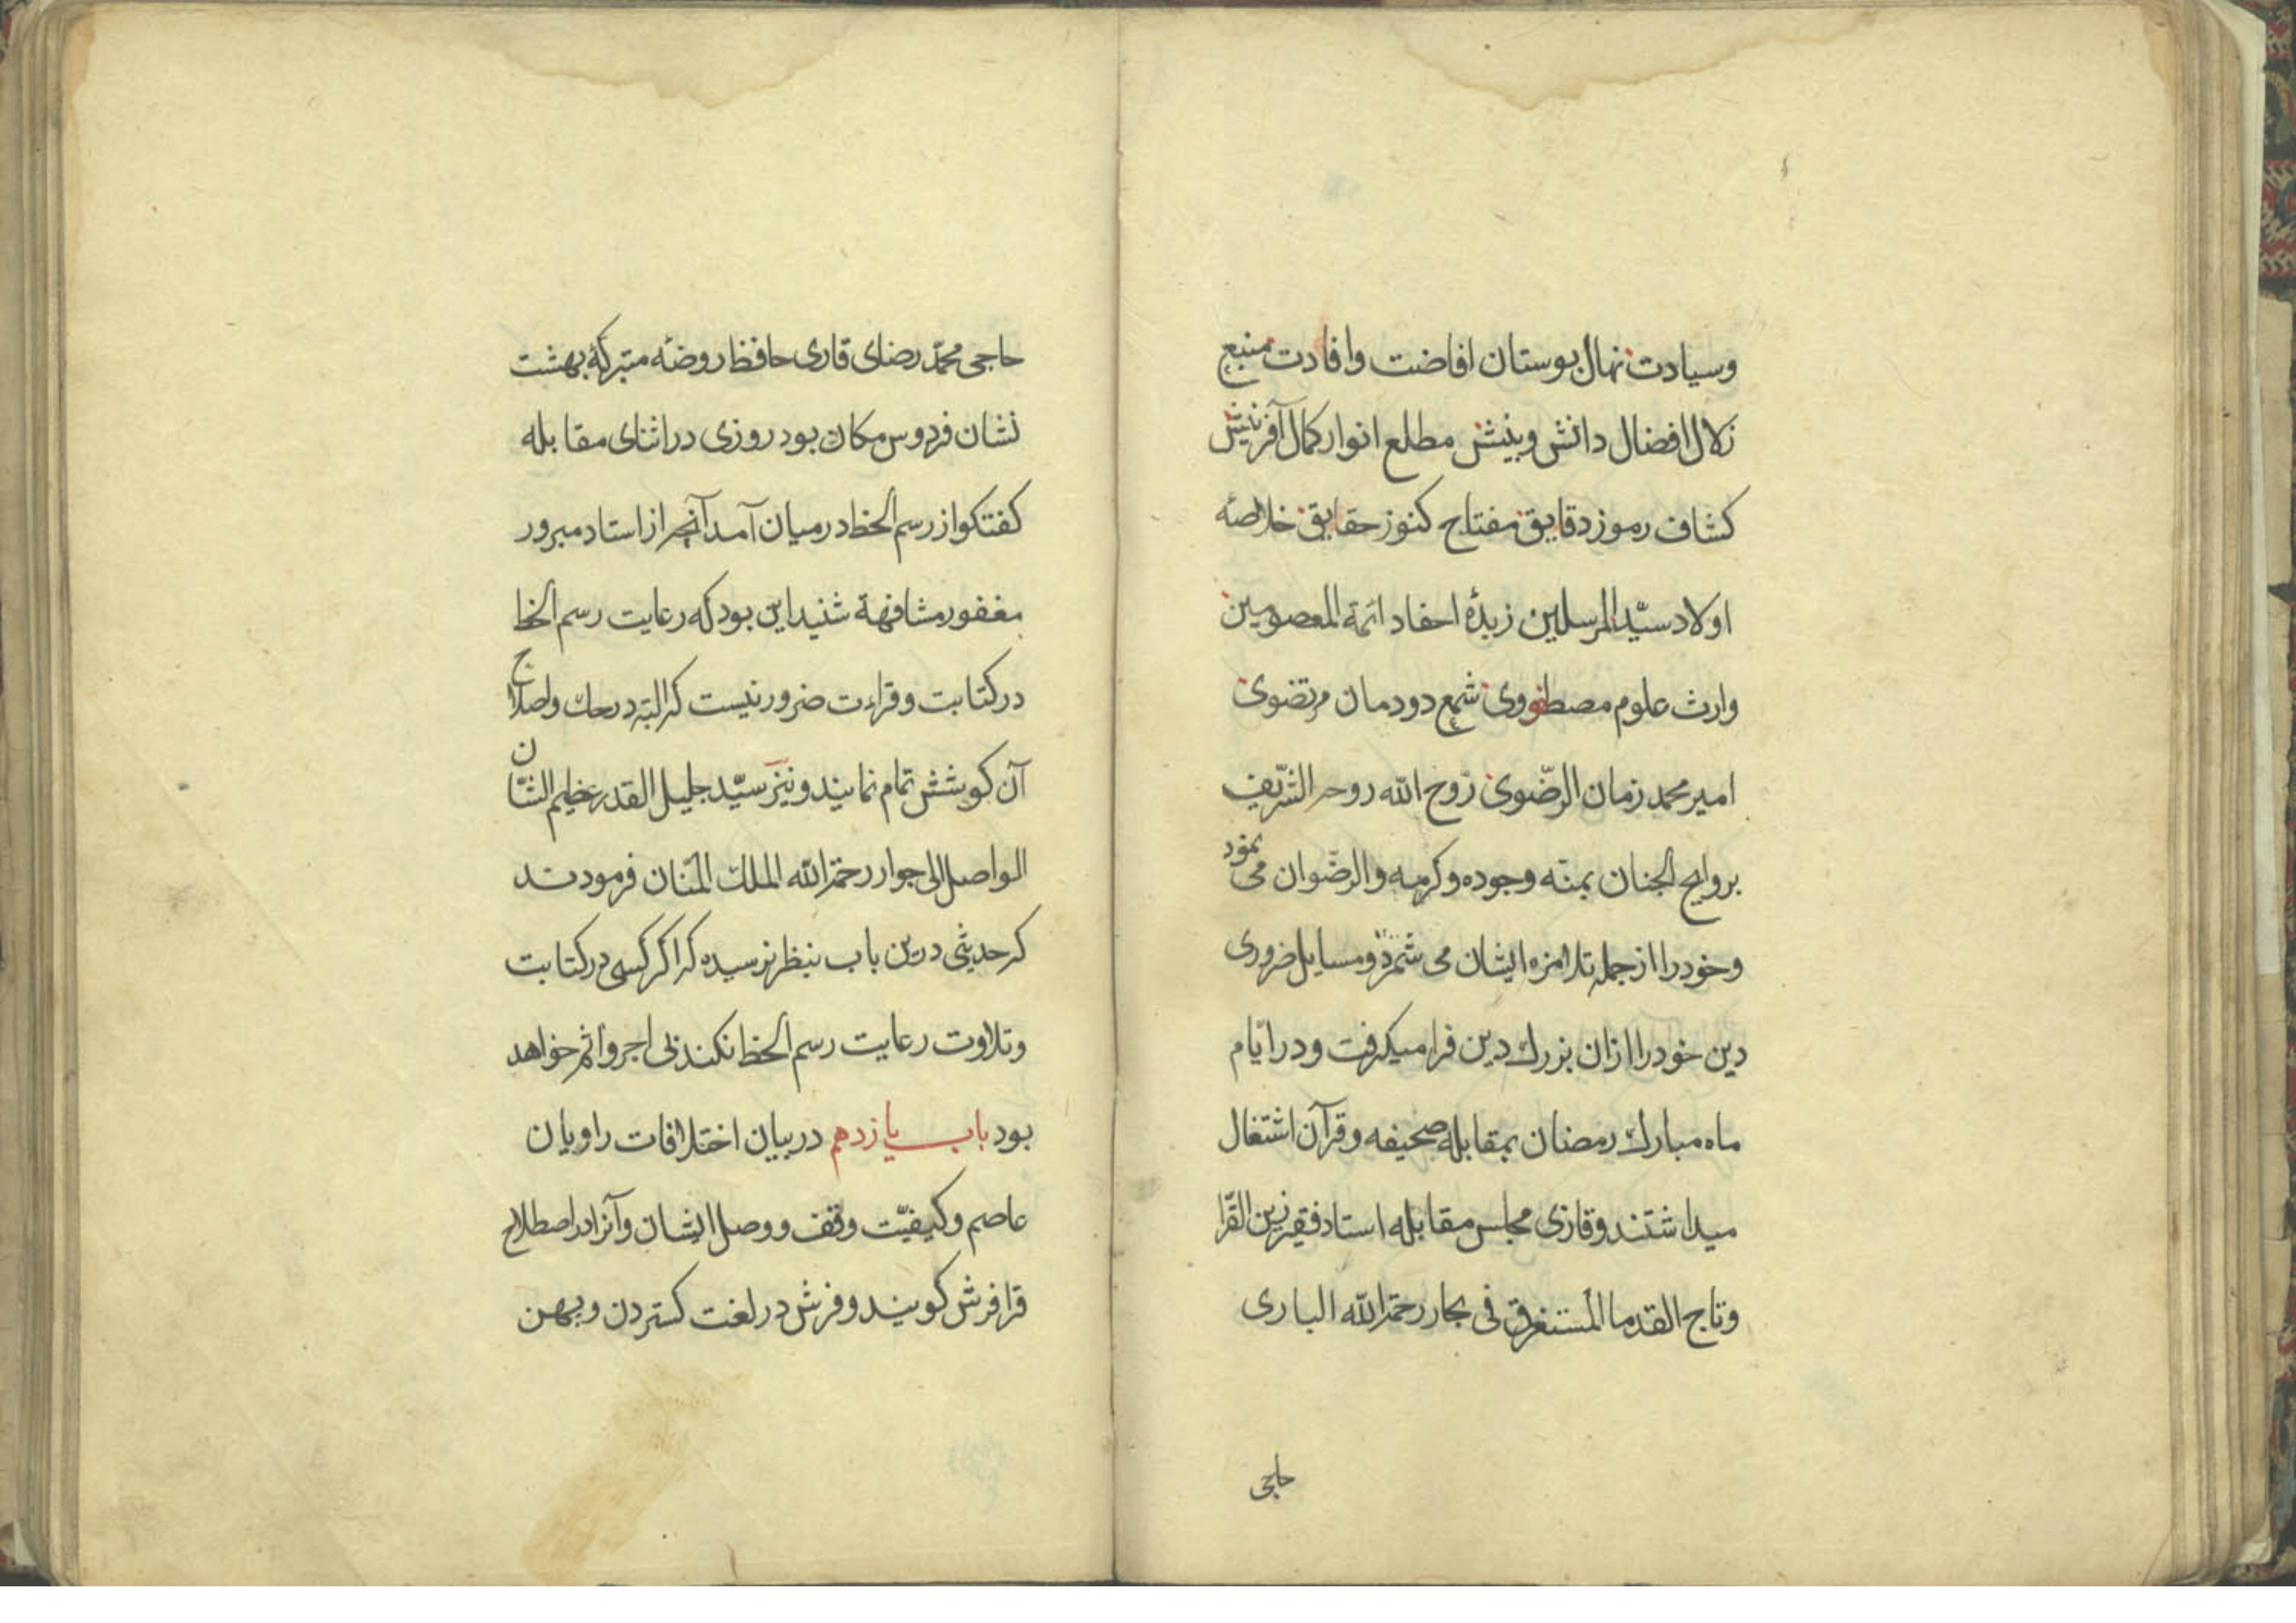 وسیادت نهال بوستان افاضت وافادت منبع
زلال افضال دانش وبینش مطلع انوار کمال آفرینش
کشاف رموز دقایق مفتاح کنوز حقایق خلاصه
اولاد سیّد المرسلین زبدهٔ احفاد ائمة المعصومین
وارث علوم مصطفووی شمع دودمان مرتضوی
امیر محمد زمان الرّضوی رَوح الله روحه الشّریف
بروایح الجنان بمنّه وجوده وکرمه والرضّوان می نمود
وخود را از جمله تلامزه ایشان می شمرد ومسایل ضروری
دین خود را ازان بزرك دین فرا میکرفت ودر ایّام
ماه مبارك رمضان بمقابله صحیفه وقرآن اشتغال
میداشتند وقاری مجلس مقابله استاد فقیر زین القرّا
وتاج القدما المستغرق فی بحار رحمة الله الباری
حاجی
حاجی محمّد رضای قاری حافظ روضه متبرکهٔ بهشت
نشان فردوس مکان بود روزی در اثنای مقابله
کفتکو از رسم الخط در میان آمد آنچه از استاد مبرور
مغفور مشافهة شنید این بود که رعایت رسم الخط
در کتابت وقراءت ضرور نیست که البته در حك واصلاح
آن کوشش تمام نمایند ونیز سیّد جلیل القدر عظیم الشّان
الواصل الی جوار رحمة الله الملك المنّان فرمودند
که حدیثی درین باب بنظر نرسیده که اکر کسی در کتابت
وتلاوت رعایت رسم الخط نکند بی اجر واثم خواهد
بود باب یازدهم در بیان اختلافات راویان
عاصم وکیفیّت وقف ووصل ایشان وآنرا در اصطلاح
قرا فرش کویند وفرش در لغت کستردن وپهن